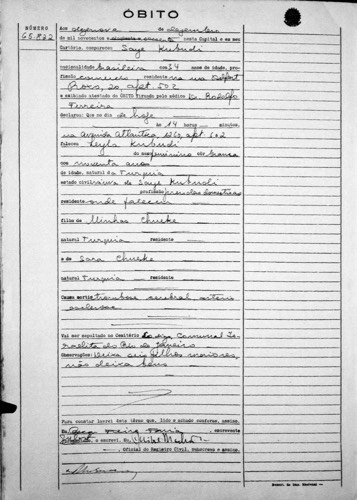 ÓBITO
NÚMERO
65.822
Aos dezenove de dezembro
de mil novecentos e nesta Capital e em meu
Cartório, compareceu Saye Kubudi
nacionalidade brasileira com 34 anos de idade, pro-
fissão comercio residente na rua Belfort
Roxo, 20, apt. 502
e exibindo atestado de ÓBITO firmado pelo médico Dr. Rodolfo
Ferreira
declarou: Que no dia de hoje
às 14 horas minutos,
na Avenida Atlantica, 1260, apt. 602
faleceu Leyla Kubudi
do sexo feminino côr branca
com noventa anos
de idade, natural da Turquia
estado civil viuva de Saye Kubudi
profissão prendas domesticas
residente onde faleceu
filho de Minhas Chueke
natural Turquia residente
e de Sara Chueke
natural Turquia residente
Causa mortis trombose cerebral, arterio
esclerose
Vai ser sepultado no Cemitério Comunal Is-
raelita do Rio de Janeiro
Observações: Deixa seis filhos maiores,
não deixa bens
Para constar lavrei êste têrmo que, lido e achado conforme, assino.
Eu, escrevente
o escrevi. Eu,
Oficial do Registro Civil, subscrevo e assino.